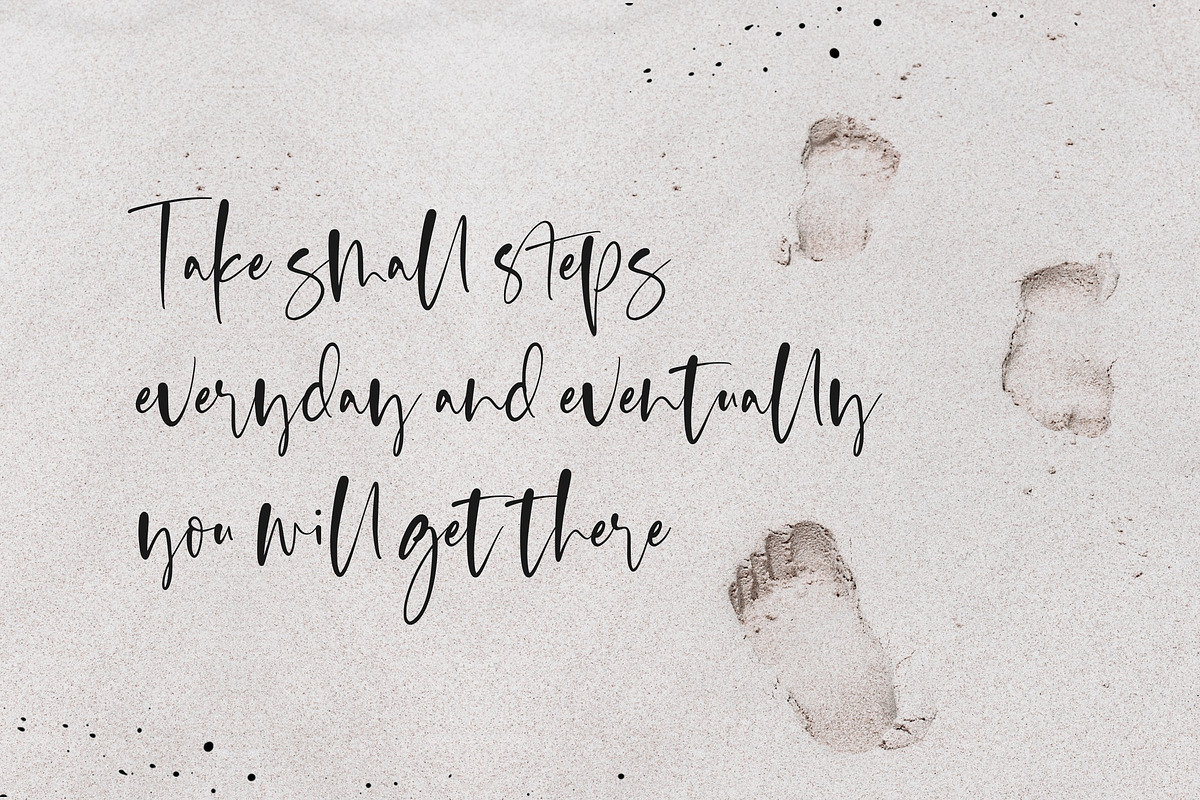 Take small steps
everyday and eventually
you will get there